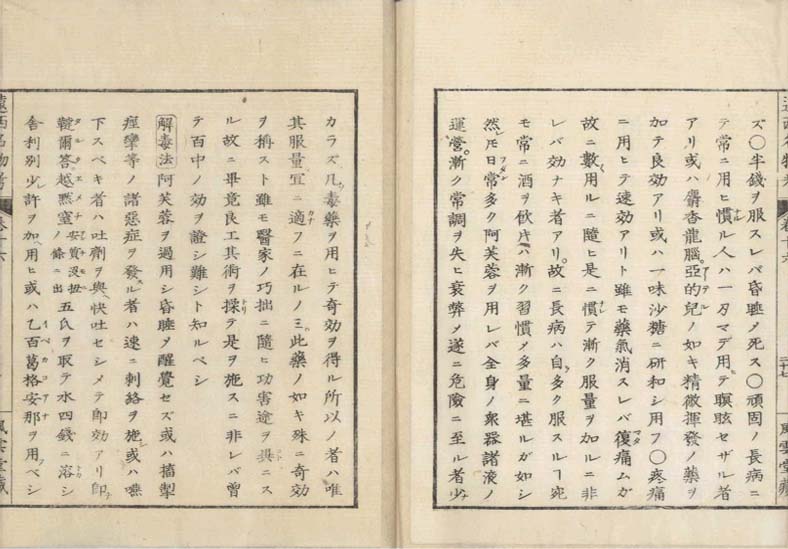 ズ〇半錢ヲ服スレバ昏睡〆死ス〇頑固ノ長病ニ
テ常ニ用ヒ慣レル人ハ一刄マデ用テ瞑眩セザル者
アリ或ハ麝香龍腦亞的兒ノ如キ精微揮發ノ藥ヲ
加テ良効アリ或ハ一味沙糖ニ研和シ用フ〇疼痛
ニ用ヒテ速効アリト雖モ藥氣消スレバ復痛ムガ
故ニ數用ルニ隨ヒ是ニ慣テ漸ク服量ヲ加ルニ非
レバ効ナキ者アリ故ニ長病ハ自多ク服スルヿ宛
モ常ニ酒ヲ飮ム片ハ漸ク習慣〆多量ニ堪ルガ如シ
然𪜈日常多ク阿芙蓉ヲ用レバ全身ノ衆器諸液ノ
運營漸ク常調ヲ失ヒ衰弊〆遂ニ危險ニ至ル者少
カラズ凡毒藥ヲ用ヒテ奇効ヲ得ル所以ノ者ハ唯
其服量宜ニ適フニ在ルノミ此藥ノ如キ殊ニ奇効
ヲ稱スト雖モ醫家ノ巧拙ニ隨ヒ功害途ヲ異ニス
ル故ニ畢竟良工其術ヲ操テ是ヲ施スニ非レバ曾
テ百中ノ効ヲ證シ難シト知ルベシ
解毒法 阿芙蓉ヲ過用シ昏睡〆醒覺セズ或ハ搐掣
痙攣等ノ諸惡症ヲ發ル者ハ速ニ刺絡ヲ施或ハ嚥
下スベキ者ハ吐劑ヲ與快吐セシメテ即効アリ即
韃爾答越黙窒ノ條ニ出 五氏ヲ取テ水四錢ニ溶シ
舎利別少許ヲ加用ヒ或ハ乙百葛格安那ヲ用ベシ
遠西名物考
卷十六
三十七
風雲堂藏